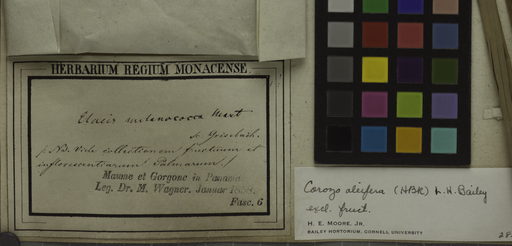 HERBARIUM REGIUM MONACENSE
Elaeis melanococca Mart
fr. Grisebach.
/ NB. Vide collectionem fructuum et
inflorescentiarum Palmarum. /
Maume et Gorgone in Panama
Leg. Dr. M. Wagner. Januar 1858.
Fasc. 6
Corozo oleifera (HBK) L. H. Bailey
excl. fruit.
H. E. MOORE, JR.
BAILEY HORTORIUM, CORNELL UNIVERSITY